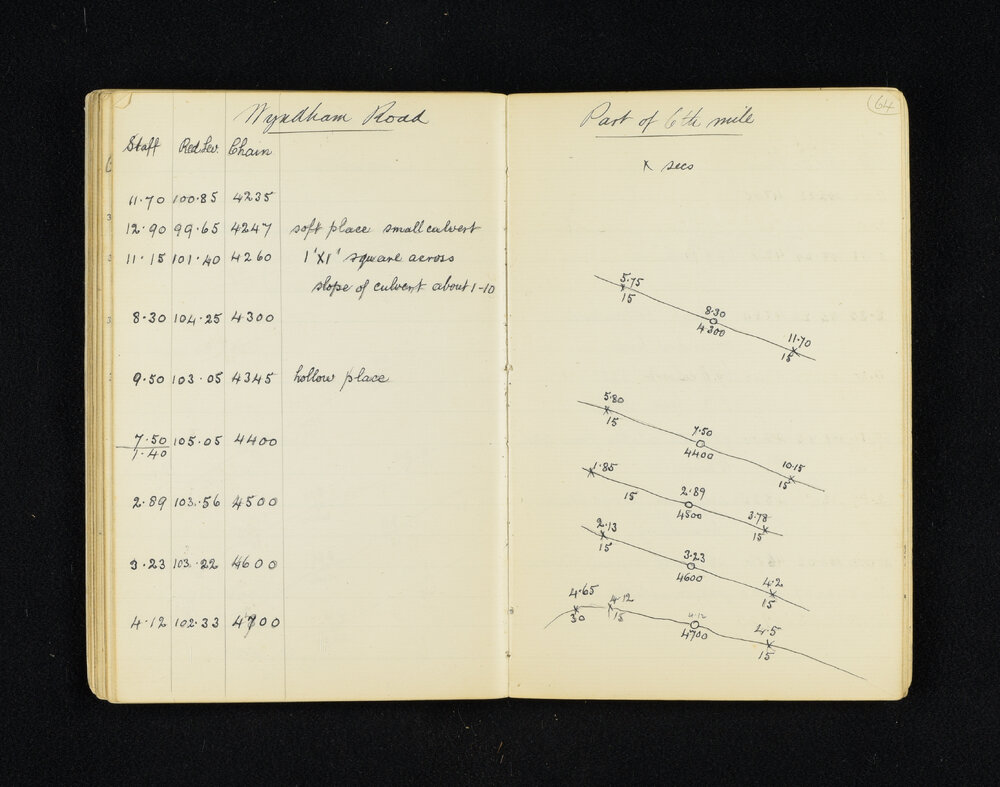 Wyndham Road
Staff Red Lev. Chain
11.70 100.85 4235
12.90 99.65 4247 soft place small culvert
11.15 101.40 4260 1'X1' square across
slope of culvert about 1-10
8.30 104.25 4300
9.50 103.05 4345 hollow place
7.50 105.05 4400
1.40
2.89 103.56 4500
3.23 103.22 4600
4.12 102.33 4700
Part of 6th mile
64
x secs
5.75
15
8.30
4300
11.70
15
5.80
15
7.50
4400
10.15
15
1.85
15
2.89
4500
3.78
15
2.13
15
3.23
4600
4.2
15
4.65
30
4.12
15
4.12
4700
4.5
15